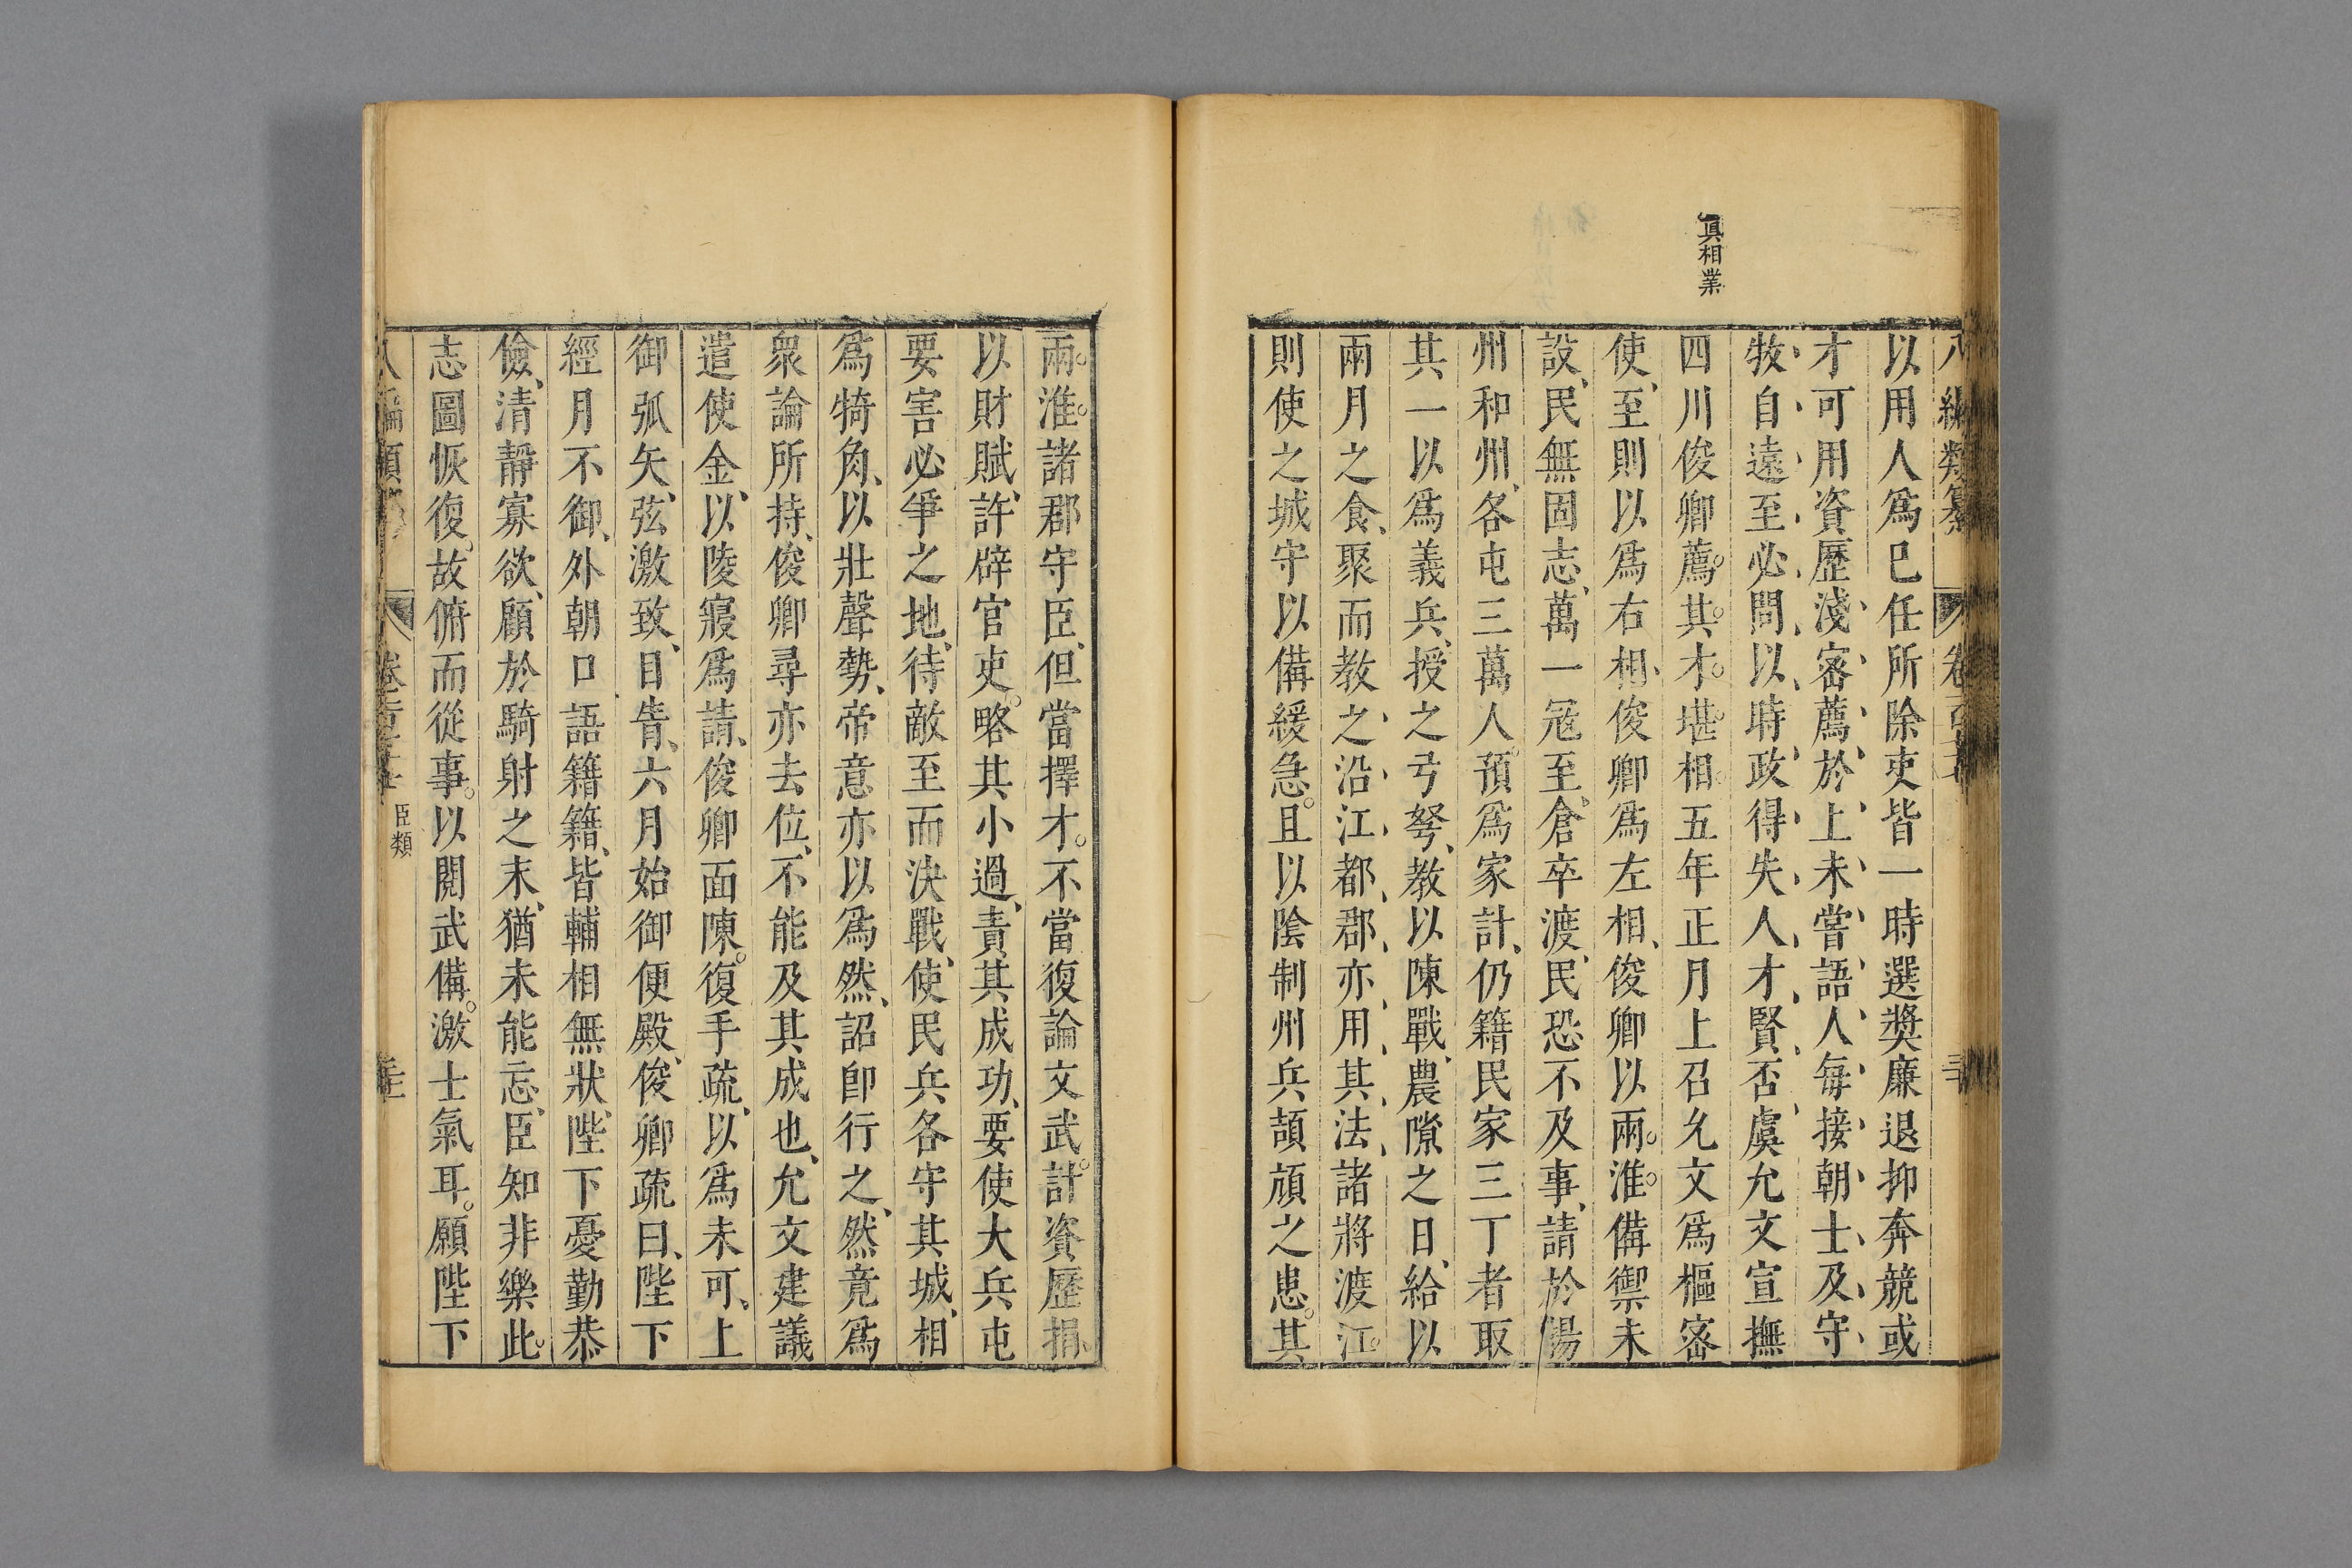 真相業
八編類纂
以用人爲巳任所除吏皆一時選奬廉退抑奔競或
才可用資歷淺、密、薦、於、上、未、嘗、語、人、每、接、朝、士、及、守、
牧、自、遠、至、必、問、以、時、政、得、失、人、才、賢、否、虞允文宣撫
四川俊卿薦。其。才。堪。相。五年正月上召允文爲樞密
使、至則以爲右相、俊卿爲左相、俊卿以兩。淮。備禦未
設、民無固志、萬一冦至、倉卒渡、民恐不及事、請於揚
州和州、各屯三萬人。預爲家計、仍籍民家三丁者取
其一以爲義兵、授之弓弩、教以陳戰、農隙之日、給以
兩月之食、聚而教之、沿、江、都、郡、亦、用、其、法、諸將渡江。
則使之城守以備緩急。且以陰制州兵頡頏之患。其
兩。淮。諸郡守臣、但當擇才。不當復論文武。計資歷捐、
以財賦、許辟官吏。略其小過、責其成功、要使大兵屯
要害必爭之地、待敵至而決戰、使民兵各守其城、相
爲犄角、以壯聲勢、帝意亦以爲然、詔卽行之、然竟爲
衆論所持、俊卿尋亦去位、不能及其成也、允文建議
遣使金、以陵寢爲請、俊卿面陳。復手疏、以爲未可、上
御弧矢、弦激致、目眚、六月始御便殿、俊卿疏曰、陛下
經月不御、外朝口語籍籍、皆輔相無狀、陛下憂勤恭
儉、清靜寡欲、顧於騎射之末、猶未能忘、臣知非樂此。
志圖恢復、故俯而從事。以閱武備。激士氣耳。願陛下
臣類